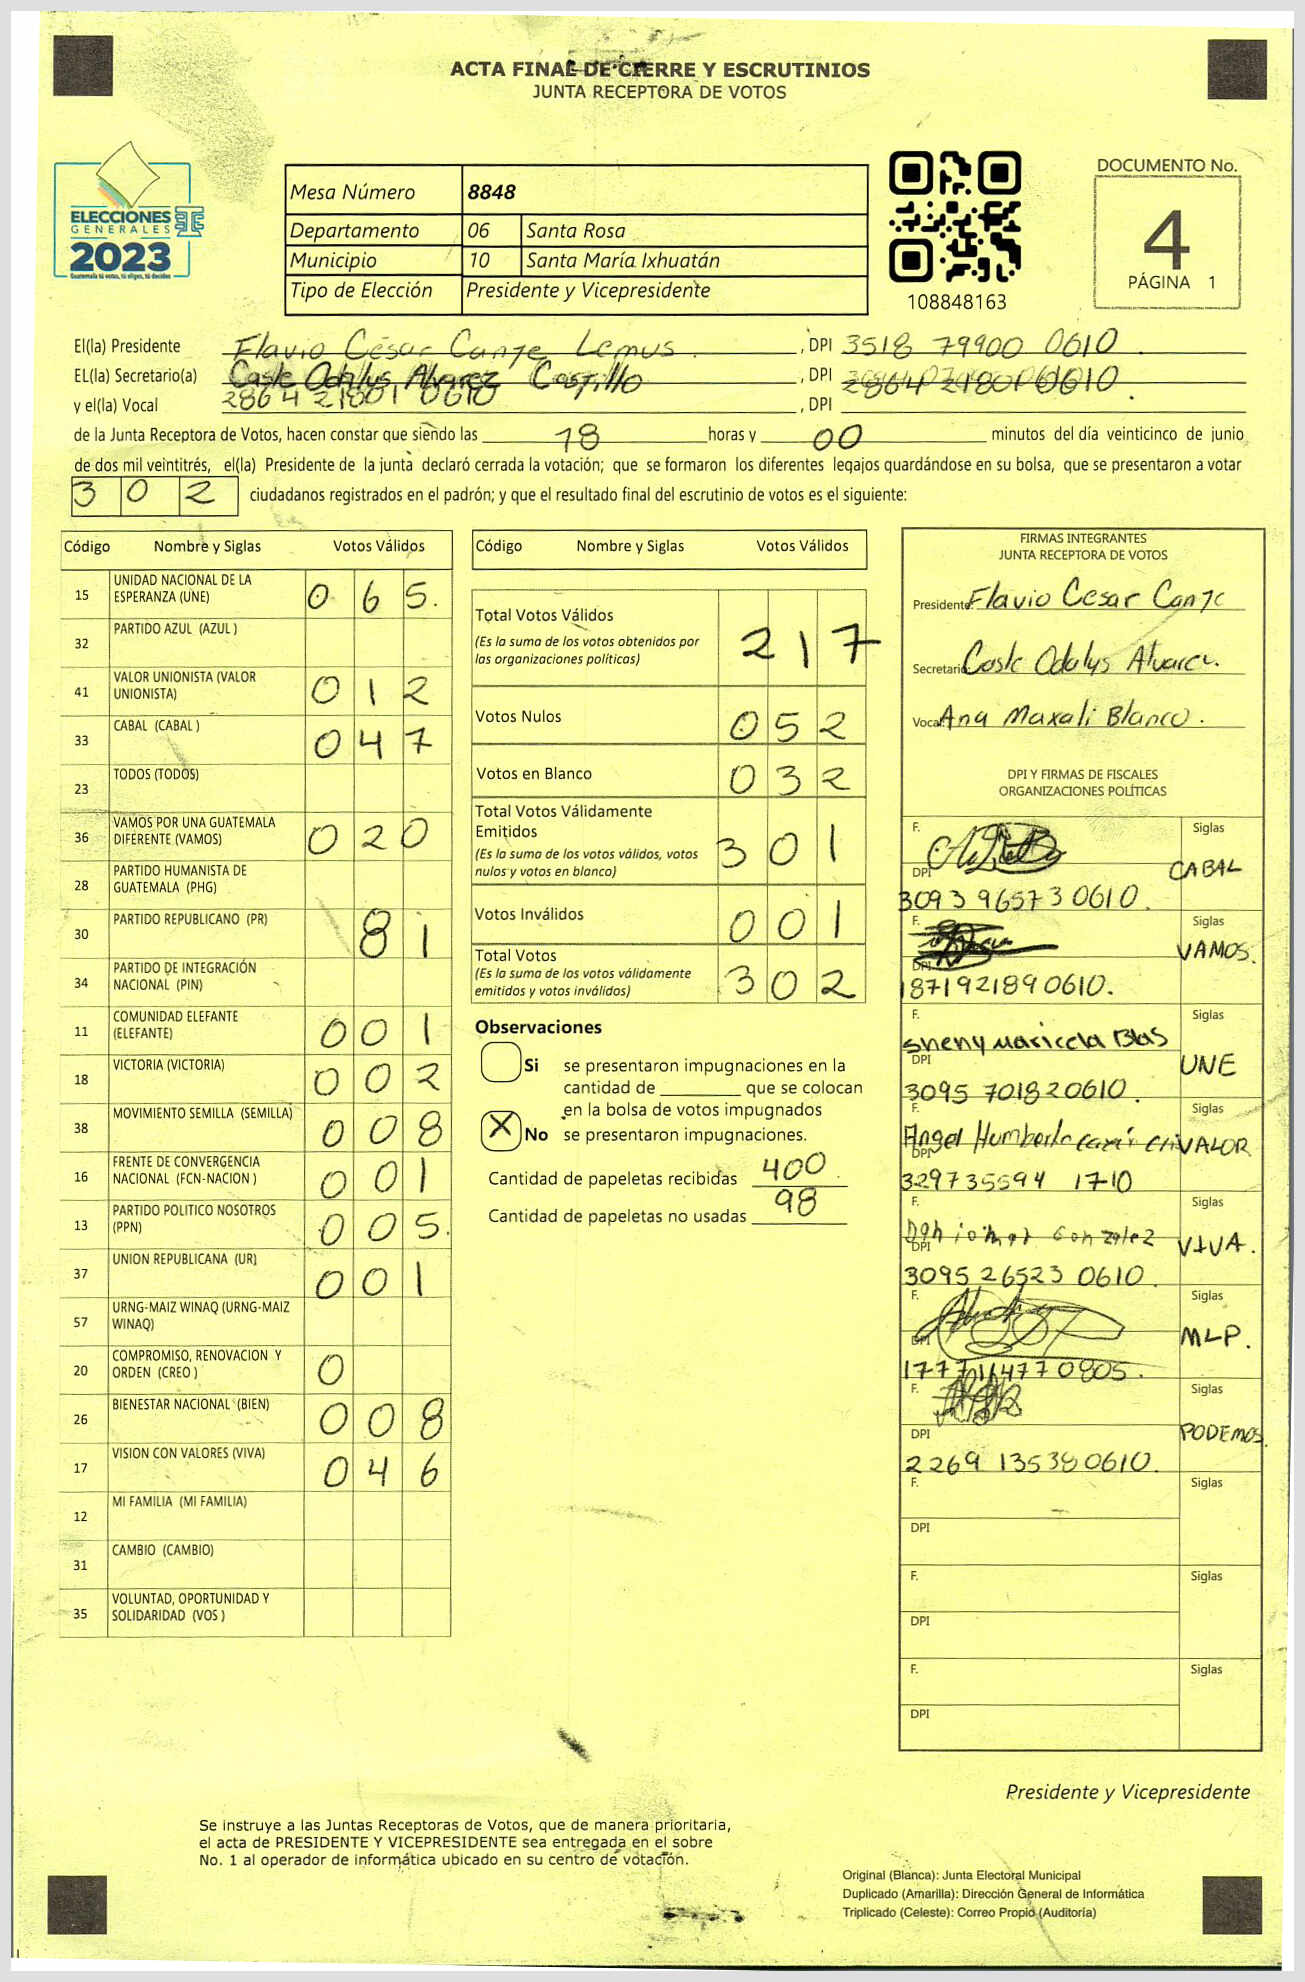 ACTA FINAL DE CIERRE Y ESCRUTINIOS
JUNTA RECEPTORA DE VOTOS
ELECCIONES
GENERALES
2023
Guatemala tú votas, tú eliges, tú decides
Mesa Número 8848
Departamento 06 Santa Rosa
Municipio 10 Santa María Ixhuatán
Tipo de Elección Presidente y Vicepresidente
108848163
DOCUMENTO No.
4
PÁGINA 1
El(la) Presidente Flavio César Canje Lemus. , DPI 3518 79900 0610
EL(la) Secretario(a) Casle Odalys Alvarez Castillo , DPI 2864 21801 0610
y el(la) Vocal 2864 21801 0610 , DPI
de la Junta Receptora de Votos, hacen constar que siendo las 18 horas y 00 minutos del día veinticinco de junio
de dos mil veintitrés, el(la) Presidente de la junta declaró cerrada la votación; que se formaron los diferentes legajos guardándose en su bolsa, que se presentaron a votar
302 ciudadanos registrados en el padrón; y que el resultado final del escrutinio de votos es el siguiente:
Código Nombre y Siglas Votos Válidos
15 UNIDAD NACIONAL DE LA ESPERANZA (UNE) 065.
32 PARTIDO AZUL (AZUL )
41 VALOR UNIONISTA (VALOR UNIONISTA) 012
33 CABAL (CABAL ) 047
23 TODOS (TODOS)
36 VAMOS POR UNA GUATEMALA DIFERENTE (VAMOS) 020
28 PARTIDO HUMANISTA DE GUATEMALA (PHG)
30 PARTIDO REPUBLICANO (PR) 81
34 PARTIDO DE INTEGRACIÓN NACIONAL (PIN)
11 COMUNIDAD ELEFANTE (ELEFANTE) 001
18 VICTORIA (VICTORIA) 002
38 MOVIMIENTO SEMILLA (SEMILLA) 008
16 FRENTE DE CONVERGENCIA NACIONAL (FCN-NACION ) 001
13 PARTIDO POLITICO NOSOTROS (PPN) 005.
37 UNION REPUBLICANA (UR) 001
57 URNG-MAIZ WINAQ (URNG-MAIZ WINAQ)
20 COMPROMISO, RENOVACION Y ORDEN (CREO ) 0
26 BIENESTAR NACIONAL (BIEN) 008
17 VISION CON VALORES (VIVA) 046
12 MI FAMILIA (MI FAMILIA)
31 CAMBIO (CAMBIO)
35 VOLUNTAD, OPORTUNIDAD Y SOLIDARIDAD (VOS )
Código Nombre y Siglas Votos Válidos
Total Votos Válidos 217
(Es la suma de los votos obtenidos por
las organizaciones políticas)
Votos Nulos 052
Votos en Blanco 032
Total Votos Válidamente
Emitidos 301
(Es la suma de los votos válidos, votos
nulos y votos en blanco)
Votos Inválidos 001
Total Votos 302
(Es la suma de los votos válidamente
emitidos y votos inválidos)
Observaciones
Si se presentaron impugnaciones en la
cantidad de ________ que se colocan
en la bolsa de votos impugnados
X No se presentaron impugnaciones.
Cantidad de papeletas recibidas 400
Cantidad de papeletas no usadas 98
FIRMAS INTEGRANTES
JUNTA RECEPTORA DE VOTOS
Presidente: Flavio Cesar Canje
Secretario: Casle Odalys Alvarez.
Vocal: Ana Maxali Blanco.
DPI Y FIRMAS DE FISCALES
ORGANIZACIONES POLÍTICAS
F. Siglas
CABAL
DPI
3093 96573 0610.
F. Siglas
VAMOS.
DPI
1871921890610.
F. Siglas
Sheny Maricela Blas
DPI UNE
3095 701820610.
F. Siglas
Angel Humberto VALOR
DPI
329735594 1710
F. Siglas
Gonzalez VIVA.
DPI
3095 26523 0610.
F. Siglas
DPI MLP.
1777164770805.
F. Siglas
DPI PODEMOS.
2269 135380610.
F. Siglas
DPI
F. Siglas
DPI
F. Siglas
DPI
Presidente y Vicepresidente
Se instruye a las Juntas Receptoras de Votos, que de manera prioritaria,
el acta de PRESIDENTE Y VICEPRESIDENTE sea entregada en el sobre
No. 1 al operador de informática ubicado en su centro de votación.
Original (Blanca): Junta Electoral Municipal
Duplicado (Amarilla): Dirección General de Informática
Triplicado (Celeste): Correo Propio (Auditoría)